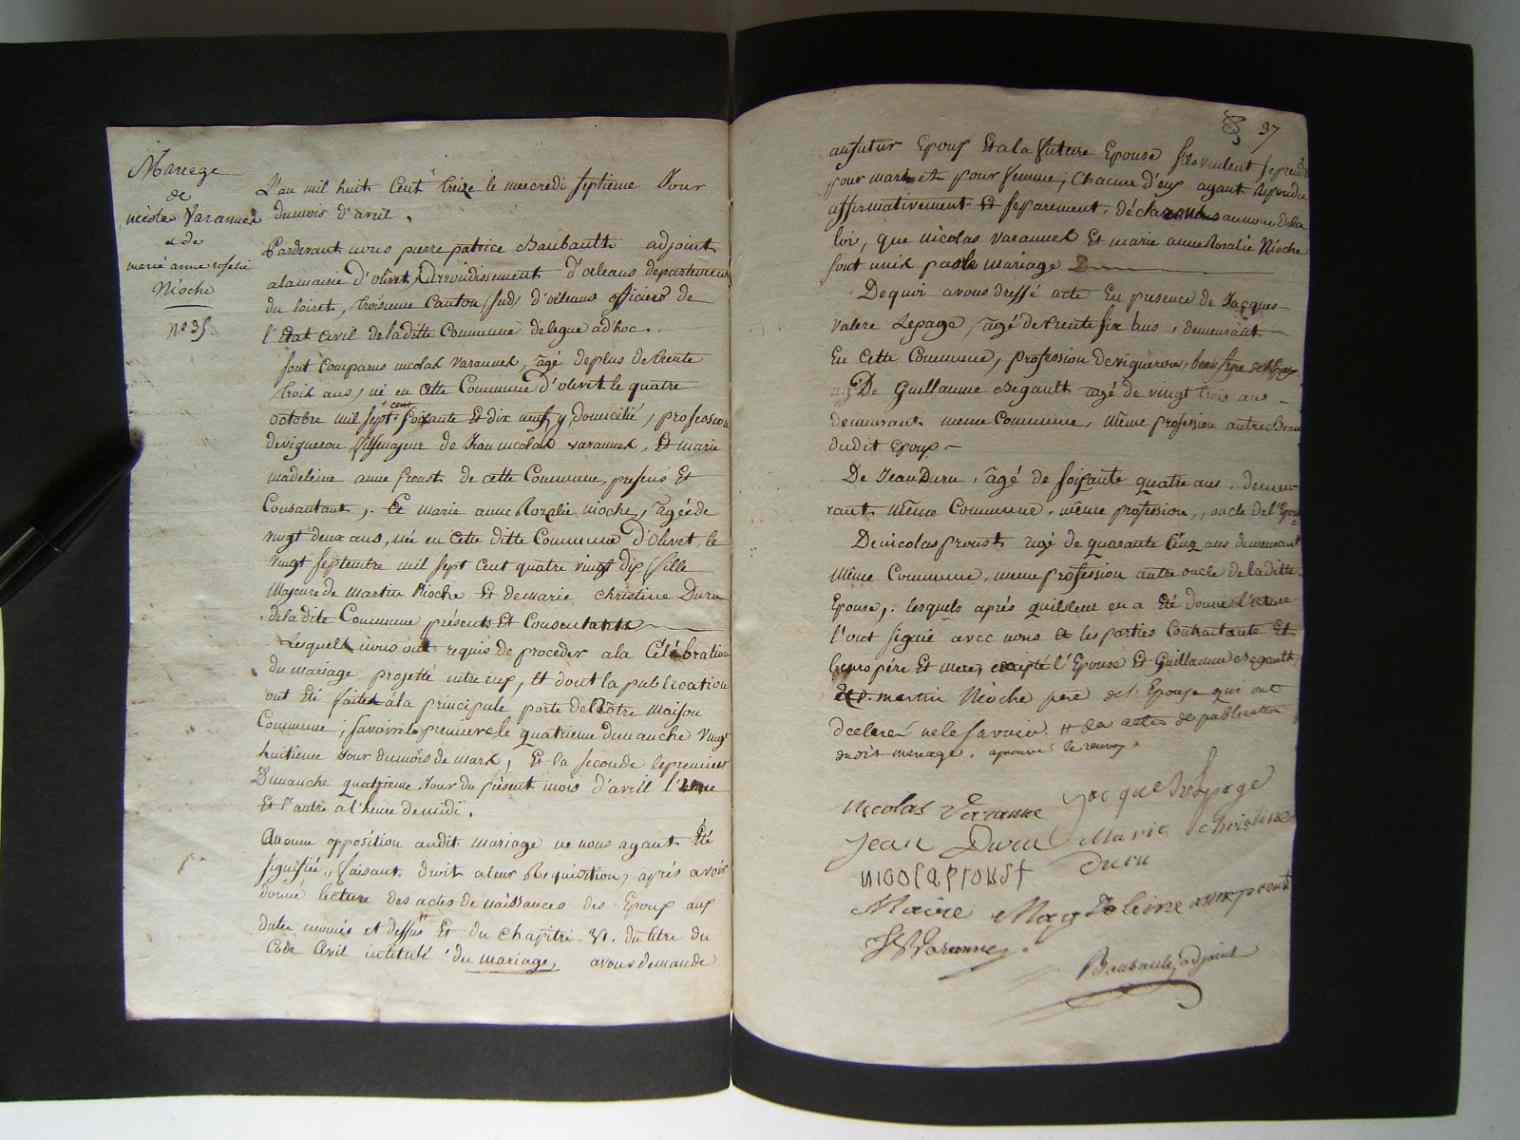 Mariage
de
nicolas Varannes
et de
marie anne rosalie
Nioche
n° 35
L'an mil huit Cent treize le mercredi septieme Jour
dumois d'avril.
Pardevant nous pierre patrice Baubault adjoint
alamairie d'olivet, Arrondissement d'orleans departement
du loiret, troisieme Canton (sud) d'orleans officier de
l'Etat Civil deladitte Commune delegue adhoc.
sont Comparus nicolas Varannes, agé deplus detrente
trois ans, né en Cette Commune d'olivet le quatre
octobre mil sept cent soixante Et dix neuf, y domicilié, profession
devigneron fils majeur de Jean nicolas varannes, Et marie
madeleine anne proust de cette Commune, presens Et
Consantant, Et marie anne Rozalie nioche, agée de
vingt deux ans, née en Cette ditte Commune d'olivet, le
vingt septembre mil sept Cent quatre vingt dix, fille
Majeure de martin Nioche Et demarie Christine Duru
deladite Commune présents Et Consentants
Lesquels nous ont requis de proceder a la Célébration
du mariage projetté entre eux, Et dont la publication
ont Eté faites à la principale porte de Notre Maison
Commune; savoir la premiere le quatrieme dimanche vingt
huitieme Jour dumois de mars, Et la seconde le premier
Dimanche quatrieme Jour du présent mois d'avril l'une
Et l'autre a l'heure de midi.
Aucune opposition audit mariage ne nous ayant Eté
signifiée, faisant droit aleur Requisition, après avoir
donné lecture des actes de naissances des Epoux aux
dates enoncés et dessus Et du Chapitre VI. du titre du
Code Civil intitulé du mariage, avons demandé
37
aufutur Epoux Et a la future Epouse s'ils veulent se prendre
pour mari et pour femme; Chacun d'eux ayant repondu
affirmativement Et separement, déclarons aunom de la
loi, que nicolas varannes Et marie anne Rosalie Nioche
sont unis par le mariage
De quoi avons dressé acte En presence de Jacques
Valere Lepage, agé de trente six ans, demeurant
En Cette Commune, profession de vigneron, beau frere
De Guillaume Segault agé de vingt trois ans
demeurant meme Commune, même profession autre
dudit Epoux
De Jean Duru, âgé de soixante quatre ans, demeu-
rant même Commune, même profession, oncle de l'Epouse
De nicolas proust agé de quarante Cinq ans demeurant
même Commune, meme profession autre oncle de la ditte
Epouse, lesquels après quil leur en a Eté donné lecture
l'ont signé avec nous et les parties Contractante Et
leurs père Et mere, excepté l'Epouse Et Guillaume Segault
martin Nioche pere de l'Epouse qui ont
declaré ne le savoir. # les actes de publication
dudit mariage. aprouvé le renvoy.
nicolas Varanne Jacque Lepage
Jean Duru Marie Christine
Duru
nicolas proust
Marie Magdeleine anne proust
Varannes
Baubault, adjoint